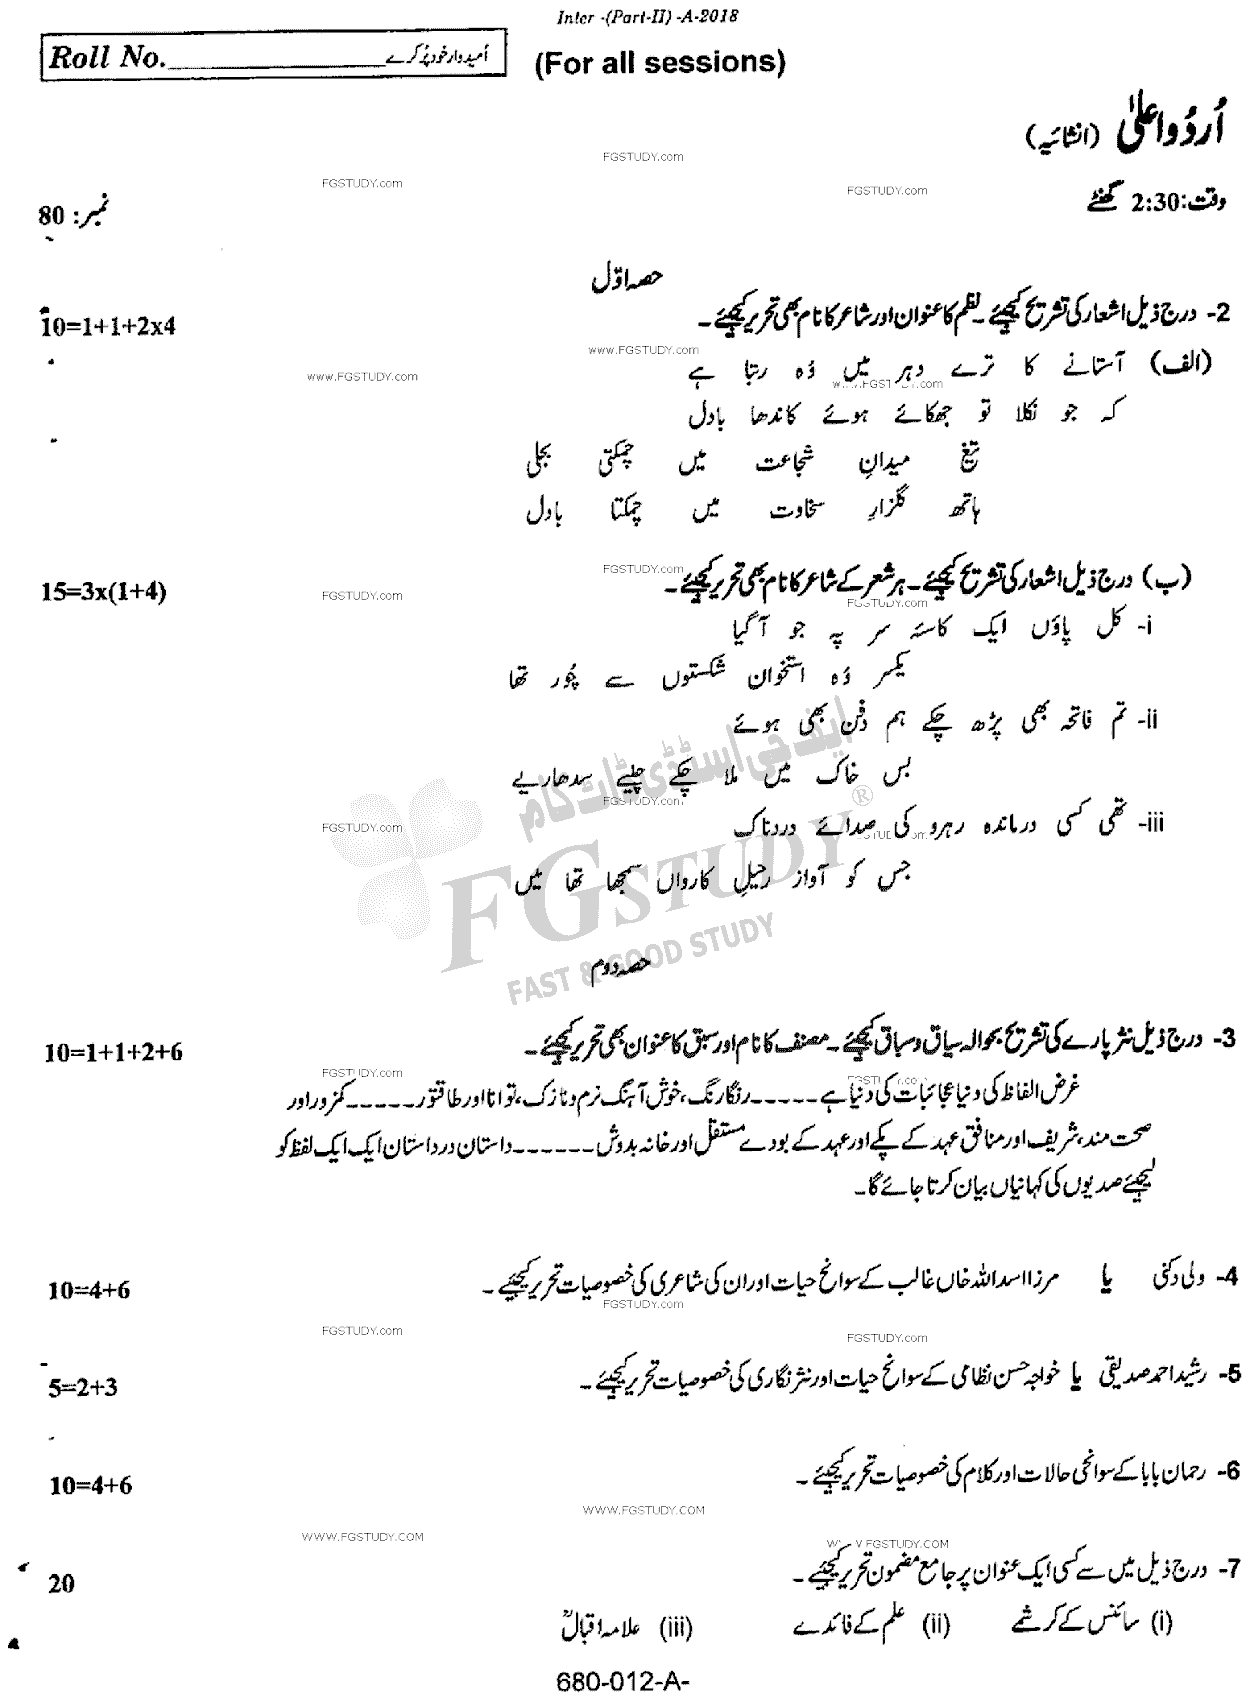 Inter -(Part-II) -A-2018
Roll No.______________ اُمیدوار خود پُر کرے
(For all sessions)
اُردُو اعلیٰ (انشائیہ)
وقت: 2:30 گھنٹے
نمبر: 80
حصہ اوّل
2- درج ذیل اشعار کی تشریح کیجیئے ۔ نظم کا عنوان اور شاعر کا نام بھی تحریر کیجیئے ۔ 10=1+1+2x4
(الف) آستانے کا ترے دہر میں وُہ رتبا ہے
کہ جو نکلا تو جھکائے ہوئے کاندھا بادل
تیغ میدانِ شجاعت میں چمکتی بجلی
ہاتھ گلزارِ سخاوت میں چمکتا بادل
(ب) درج ذیل اشعار کی تشریح کیجیئے ۔ ہر شعر کے شاعر کا نام بھی تحریر کیجیئے ۔ 15=3x(1+4)
i- کل پاؤں ایک کاسۂ سر پہ جو آ گیا
یکسر وُہ استخوان شکستوں سے چُور تھا
ii- تم فاتحہ بھی پڑھ چکے ہم دفن بھی ہوئے
بس خاک میں ملا چکے چلیے سدھاریے
iii- تھی کسی درماندہ رہرو کی صدائے دردناک
جس کو آواز رحیلِ کارواں سمجھا تھا میں
ایف جی اسٹڈی ڈاٹ کام
FG STUDY®
FAST & GOOD STUDY
حصہ دوم
3- درج ذیل نثر پارے کی تشریح بحوالہ سیاق و سباق کیجیئے ۔ مصنف کا نام اور سبق کا عنوان بھی تحریر کیجیئے ۔ 10=1+1+2+6
غرض الفاظ کی دنیا عجائبات کی دنیا ہے ۔۔۔۔۔ رنگارنگ، خوش آہنگ نرم و نازک، توانا اور طاقتور ۔۔۔۔۔ کمزور اور
صحت مند، شریف اور منافق عہد کے پکے اور عہد کے بودے مستقل اور خانہ بدوش ۔۔۔۔۔۔ داستان در داستان ایک ایک لفظ کو
لیجیئے صدیوں کی کہانیاں بیان کرتا جائے گا۔
4- ولی دکنی یا مرزا اسد اللہ خاں غالب کے سوانح حیات اور ان کی شاعری کی خصوصیات تحریر کیجیئے ۔ 10=4+6
5- رشید احمد صدیقی یا خواجہ حسن نظامی کے سوانح حیات اور نثر نگاری کی خصوصیات تحریر کیجیئے ۔ 5=2+3
6- رحمان بابا کے سوانحی حالات اور کلام کی خصوصیات تحریر کیجیئے ۔ 10=4+6
7- درج ذیل میں سے کسی ایک عنوان پر جامع مضمون تحریر کیجیئے ۔ 20
(i) سائنس کے کرشمے (ii) علم کے فائدے (iii) علامہ اقبالؒ
680-012-A-